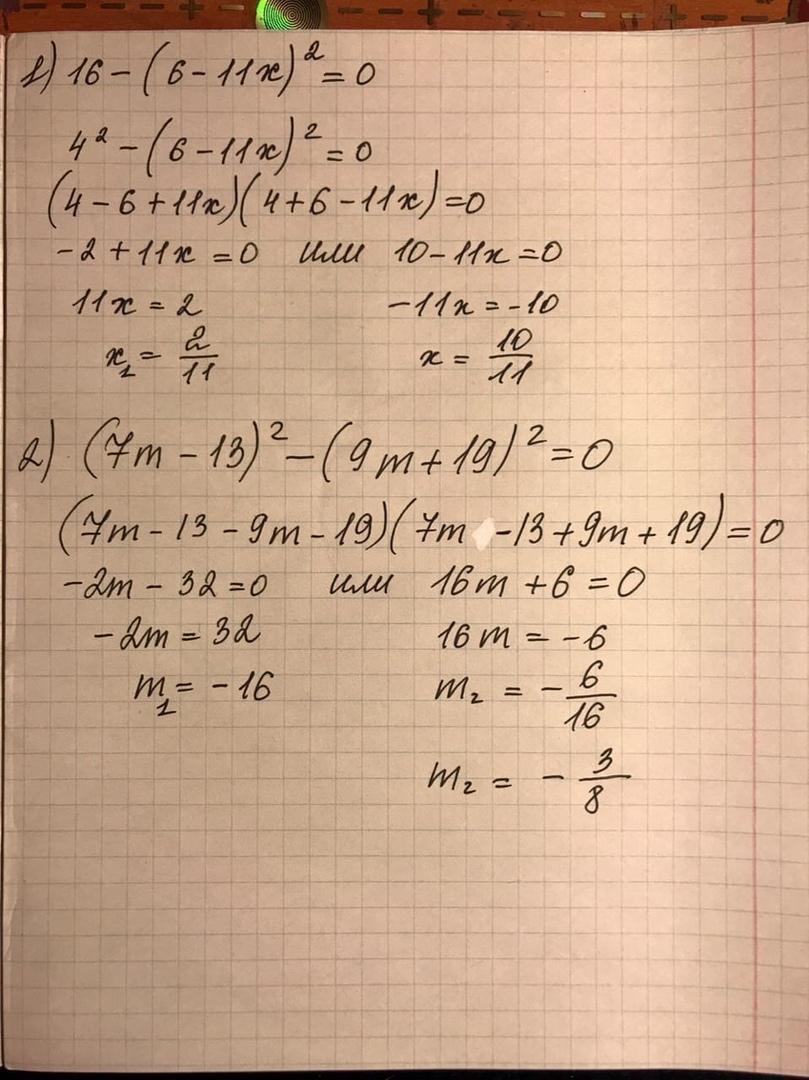 1) 16 - (6 - 11x)² = 0
4² - (6 - 11x)² = 0
(4 - 6 + 11x)(4 + 6 - 11x) = 0
-2 + 11x = 0 или 10 - 11x = 0
11x = 2 -11x = -10
x₁ = 2/11 x = 10/11
2) (7m - 13)² - (9m + 19)² = 0
(7m - 13 - 9m - 19)(7m - 13 + 9m + 19) = 0
-2m - 32 = 0 или 16m + 6 = 0
-2m = 32 16m = -6
m₁ = -16 m₂ = - 6/16
m₂ = - 3/8